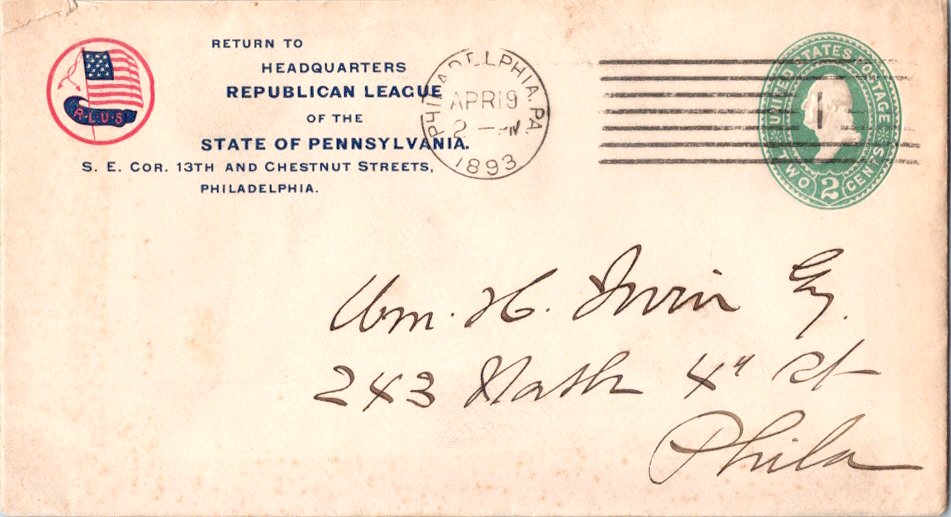 RETURN TO
HEADQUARTERS
REPUBLICAN LEAGUE
OF THE
STATE OF PENNSYLVANIA.
S. E. COR. 13TH AND CHESTNUT STREETS,
PHILADELPHIA.
R·L·U·S
PHILADELPHIA, PA
APR 19
2 -
1893
1
UNITED STATES POSTAGE
TWO 2 CENTS
Wm. H. Irvin Esq.
243 North 4" St
Phila